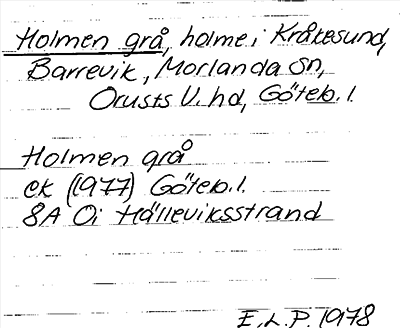 Holmen grå, holme i Kråkesund,
Barrevik, Morlanda sn,
Orusts V. hd, Göteb. l.
Holmen grå
ek (1977) Göteb. l.
8A Oi Hälleviksstrand
E. L. P. 1978